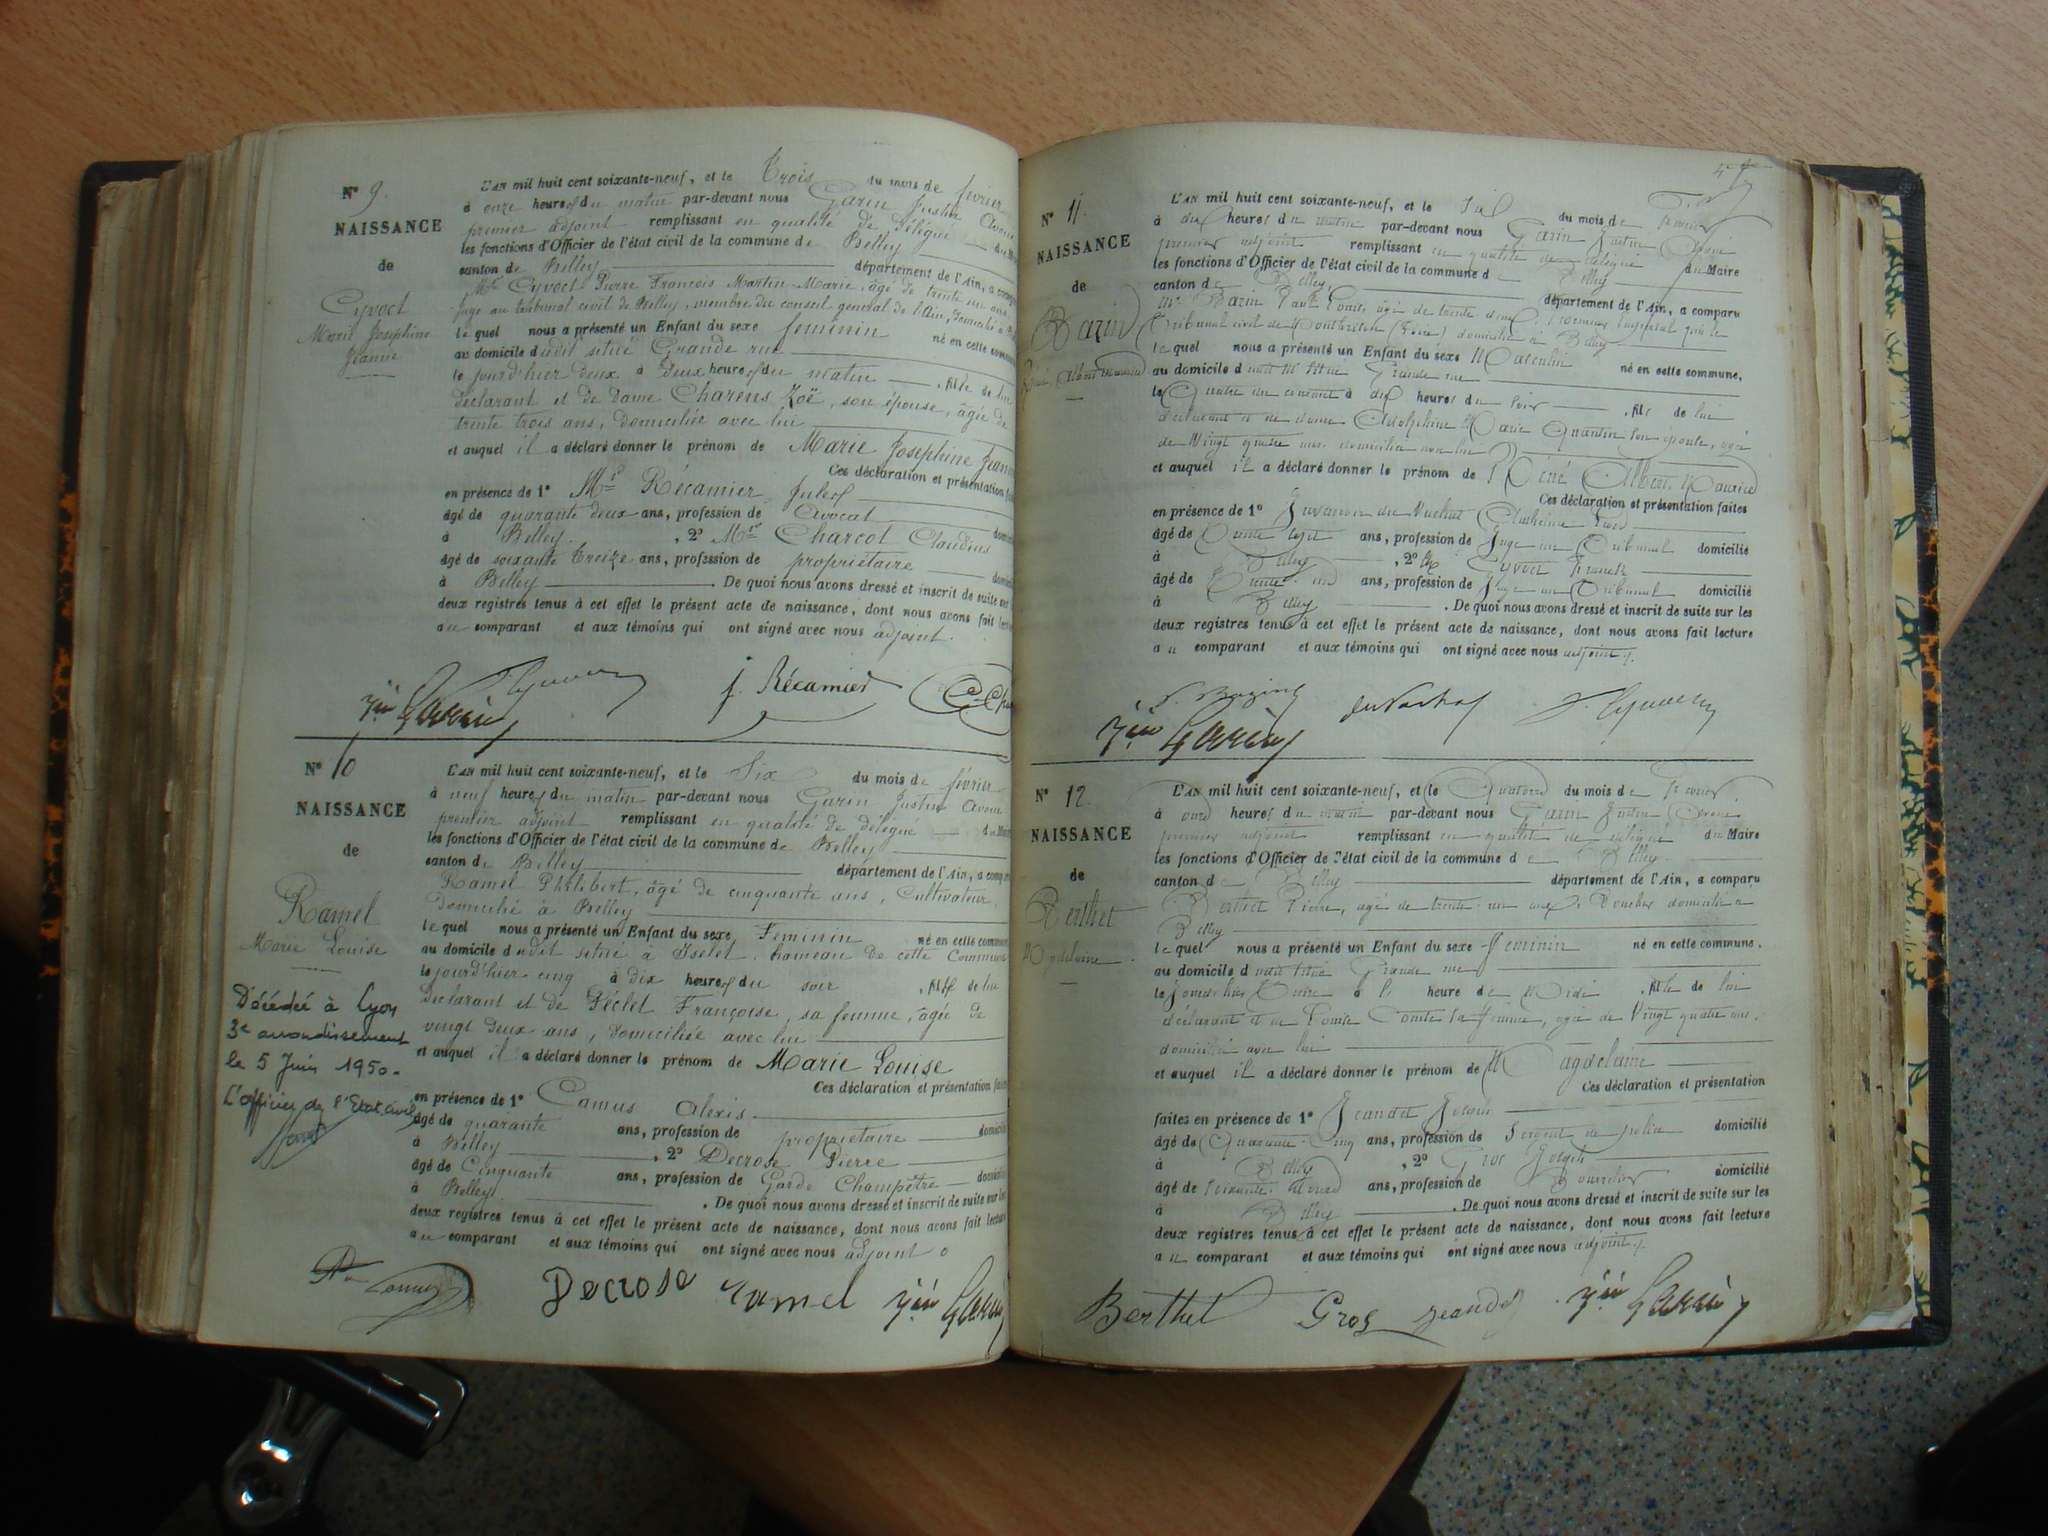 N° 9.
NAISSANCE
de
Cyvoct
Marie Joséphine
Jeanne
L'AN mil huit cent soixante-neuf, et le Trois du mois de février
à onze heures du matin par-devant nous Garin Justin Avoué
premier adjoint remplissant en qualité de délégué du Maire
les fonctions d'Officier de l'état civil de la commune de Belley
canton de Belley département de l'Ain, a comparu
Mr Cyvoct Pierre François Martin Marie, âgé de trente un ans
Juge au tribunal civil de Belley, membre du conseil général de l'Ain, domicilié à
lequel nous a présenté un Enfant du sexe féminin né en cette commune
au domicile dudit situé Grande rue
le jourd'hier deux à deux heures du matin, fille de lui
déclarant et de Dame Charens Zoë, son épouse, âgée de
trente trois ans, domiciliée avec lui
et auquel il a déclaré donner le prénom de Marie Joséphine Jeanne
Ces déclaration et présentation
en présence de 1° Mr Récamier Jules
âgé de quarante deux ans, profession de Avocat
à Belley, 2° Mr Charcot Claudius
âgé de soixante treize ans, profession de propriétaire
à Belley. De quoi nous avons dressé et inscrit de suite sur
deux registres tenus à cet effet le présent acte de naissance, dont nous avons fait
au comparant et aux témoins qui ont signé avec nous adjoint.
J. Récamier
Jin Garin
N° 10
NAISSANCE
de
Ramel
Marie Louise
Décédée à Lyon
3e arrondissement
le 5 Juin 1950.
L'officier de l'Etat civil
L'AN mil huit cent soixante-neuf, et le Six du mois de février
à neuf heures du matin par-devant nous Garin Justin Avoué
premier adjoint remplissant en qualité de délégué du Maire
les fonctions d'Officier de l'état civil de la commune de Belley
canton de Belley département de l'Ain, a comparu
Ramel Philibert, âgé de cinquante ans, Cultivateur,
domicilié à Belley
lequel nous a présenté un Enfant du sexe Féminin né en cette commune
au domicile dudit situé à hameau de cette Commune
le jourd'hier cinq à dix heures du soir, fille de lui
déclarant et de Péclet Françoise, sa femme, âgée de
vingt deux ans, domiciliée avec lui
et auquel il a déclaré donner le prénom de Marie Louise
Ces déclaration et présentation
en présence de 1° Camus Alexis
âgé de quarante ans, profession de propriétaire
à Belley, 2° Decrose Pierre
âgé de Cinquante ans, profession de Garde Champêtre
à Belley. De quoi nous avons dressé et inscrit de suite sur les
deux registres tenus à cet effet le présent acte de naissance, dont nous avons fait lecture
au comparant et aux témoins qui ont signé avec nous adjoint
Decrose ramel Jin Garin
N° 11.
NAISSANCE
de
Bazin
René Albert Maurice
L'AN mil huit cent soixante-neuf, et le Six du mois de Février
à dix heures du matin par-devant nous Garin Justin Avoué
premier adjoint remplissant en qualité de délégué du Maire
les fonctions d'Officier de l'état civil de la commune de Belley
canton de Belley département de l'Ain, a comparu
Mr Bazin Paul Louis, âgé de trente Procureur Impérial près le
Tribunal civil de Montbrison (Loire) domicilié à Belley
lequel nous a présenté un Enfant du sexe Masculin né en cette commune,
au domicile dudit situé Grande rue
le Quatre du courant à dix heures du soir, fils de lui
déclarant et de dame Marie Quantin son épouse, âgée
de Vingt quatre ans domiciliée avec lui
et auquel il a déclaré donner le prénom de René Albert Maurice
Ces déclaration et présentation faites
en présence de 1° du Vachat
âgé de Trente sept ans, profession de Juge au Tribunal domicilié
à Belley, 2° Mr Cyvoct Franck
âgé de Trente un ans, profession de Juge au Tribunal domicilié
à Belley. De quoi nous avons dressé et inscrit de suite sur les
deux registres tenus à cet effet le présent acte de naissance, dont nous avons fait lecture
au comparant et aux témoins qui ont signé avec nous adjoint.
P. Bazin du Vachat
Jin Garin
N° 12
NAISSANCE
de
Berthet
Magdelaine
L'AN mil huit cent soixante-neuf, et le Quatorze du mois de Février
à onze heures du matin par-devant nous Garin Justin Avoué
premier adjoint remplissant en qualité de délégué du Maire
les fonctions d'Officier de l'état civil de la commune de Belley
canton de Belley département de l'Ain, a comparu
Berthet Pierre, âgé de trente un ans, Boucher domicilié à
Belley
lequel nous a présenté un Enfant du sexe Féminin né en cette commune.
au domicile dudit situé Grande rue
le Jourd'hier Treize à heure de Midi, fille de lui
déclarant et de Louise Comte sa femme, âgée de Vingt quatre ans,
domiciliée avec lui
et auquel il a déclaré donner le prénom de Magdelaine
Ces déclaration et présentation
faites en présence de 1° Jeandet Joseph
âgé de Quarante Cinq ans, profession de Sergent de police domicilié
à Belley, 2° Gros Joseph
âgé de soixante ans, profession de domicilié
à Belley. De quoi nous avons dressé et inscrit de suite sur les
deux registres tenus à cet effet le présent acte de naissance, dont nous avons fait lecture
au comparant et aux témoins qui ont signé avec nous adjoint.
Berthet Gros Jeandet Jin Garin